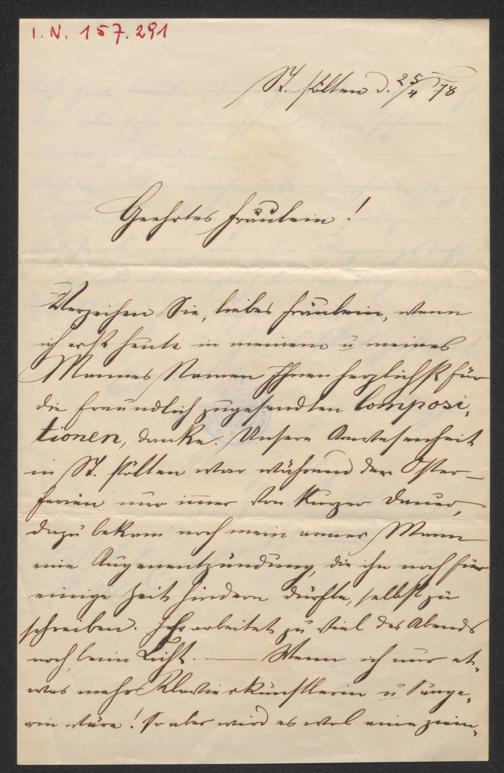 I.N. 157.291
St. Pölten d. 25/4 78
Geehrtes Fräulein!
Verzeihen Sie, liebes Fräulein, wenn
ich erst heute in meinem u meines
Mannes Namen Ihnen herzlichst für
die freundlich zugesendten Composi-
tionen, danke. Unsere Anwesenheit
in St. Pölten war während der Oster-
ferien nur immer von kurzer Dauer,
dazu bekam noch mein armer Mann
eine Augenentzündung, die ihn noch für
einige Zeit hindern dürfte, selbst zu
schreiben. Er arbeitet zu viel des Abends
noch beim Licht. — Wenn ich nur et-
was mehr Klavierkünstlerin u Sänge-
rin wäre! So aber wird es wol eine ziem-